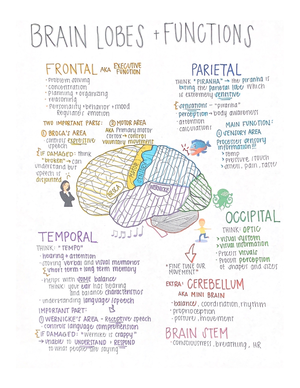 BRAIN LOBES + FUNCTIONS
FRONTAL AKA EXECUTIVE FUNCTION
- problem solving
- concentration
- planning + organizing
- reasoning
- personality/behavior/mood
Regulates emotion
TWO IMPORTANT PARTS:
① BROCA'S AREA
controls expressive speech
IF DAMAGED: think "broken" → can understand but speech is
② MOTOR AREA
AKA Primary motor cortex → controls voluntary movement
PARIETAL
THINK "PIRANHA" → the piranha is
biting the parietal lobe which
is extremely sensitive
sensation - "piranha"
perception - body awareness
- attention
- calculation
MAIN FUNCTION:
① SENSORY AREA
Processes sensory information
→ temp
→ pressure, touch
→ pain
BROCA
MOTOR
SENSORY
WERNICKE'S
OCCIPITAL
THINK: OPTIC
visual system
visual information
Process visuals
Process perception
of shapes and sizes
"FINE TUNE" OUR
MOVEMENT
TEMPORAL
THINK: "TEMPO"
- hearing + attention
- storing verbal and visual memories
short term + long term memory
- helps with balance
think: your ear has hearing
and balance characteristics
- understanding language/speech
IMPORTANT PART:
① WERNICKE'S AREA - Receptive speech
- controls language comprehension
IF DAMAGED = "wernicke is crappy"
→ unable to understand + respond
is what people are saying
EXTRA: CEREBELLUM
AKA MINI BRAIN
- balance, coordination, rhythm
- proprioception
- posture, movement
BRAIN STEM
- consciousness, breathing, HR